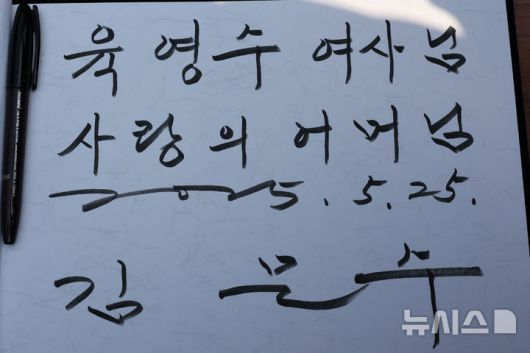 육영수 여사님
사랑의 어머님
2025. 5. 25.
김문수
뉴시스